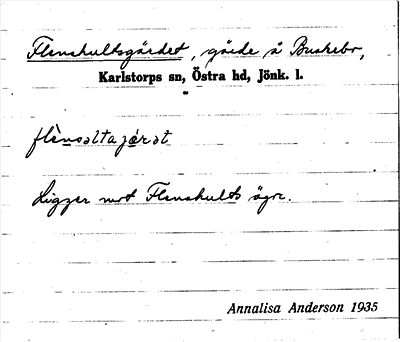 Flenshultsgärdet, gärde å Buskebo,
Karlstorps sn, Östra hd, Jönk. l.
flènsəltajæ̀rət
Ligger mot Flenshults ägor.
Annalisa Anderson 1935